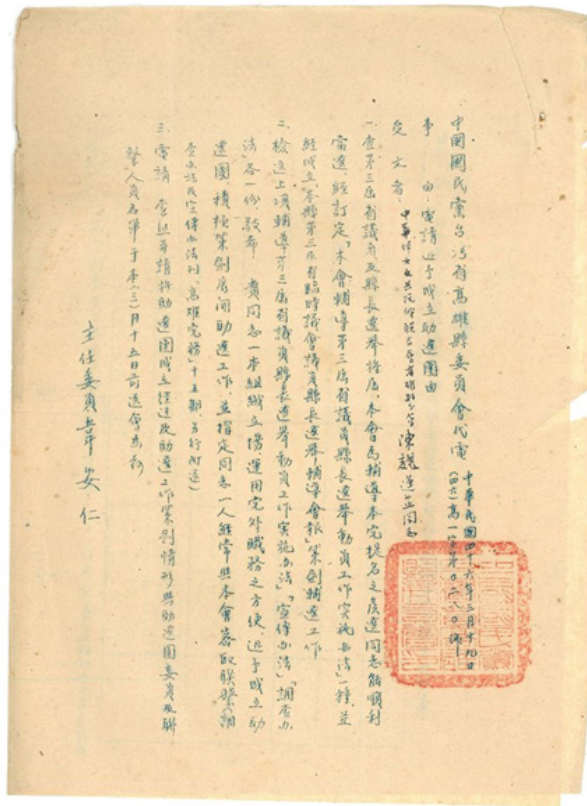 中國國民黨台灣省高雄縣委員會代電
中華民國四十六年三月十九日
(四六)高一字第0二八0號
事由:電請迅予成立助選團由
受文者:中華婦女反共抗俄聯合會 陳 同志
一、查第三屆省議員及縣長選舉將屆,本會為輔導本党提名之候選同志能順利
當選,經訂定「本會輔導第三屆省議員縣長選舉動員工作实施办法」一種,並
經成立「本縣第三屆省臨時議會議員縣長選舉輔導會報」策劃輔選工作
二、檢送上項輔導第三屆省議員縣長選舉動員工作实施办法」「宣傳办法」「調查办
法」各一份,敬希 貴同志一本組織立場,運用党外職務之方便,迅予成立助
選團,積極策劃展開助選工作,並指定同志一人經常與本會密取联繫(調
查办法及宣傳办法刊「高雄党務」十五期,另行附送)
三、電請 查照并請將助選團成立經過及助選工作策劃情形與助選團委員及聯
繫人員名單于本(三)月十五日前送會為荷
主任委員 安仁